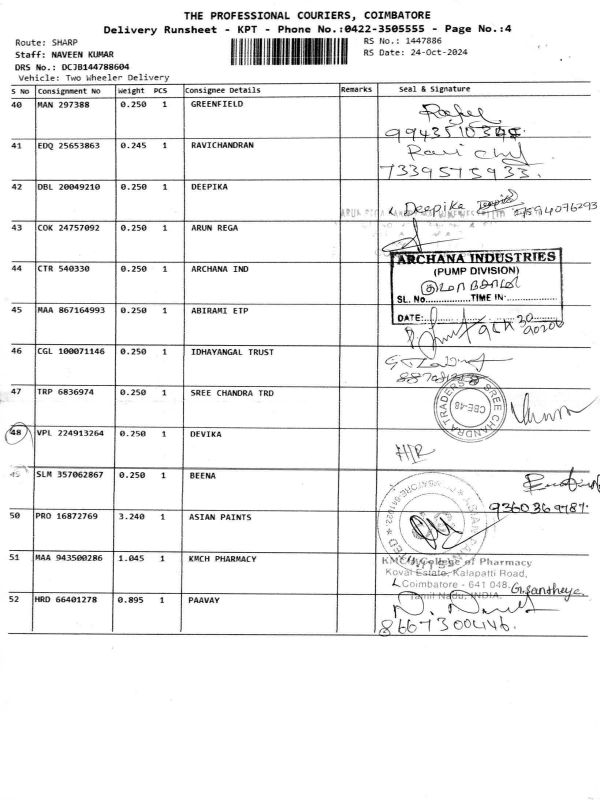 THE PROFESSIONAL COURIERS, COIMBATORE
Delivery Runsheet - KPT - Phone No.:0422-3505555 - Page No.:4
Route: SHARP RS No.: 1447886
Staff: NAVEEN KUMAR RS Date: 24-Oct-2024
DRS No.: DCJB144788604
Vehicle: Two Wheeler Delivery
S No Consignment No Weight PCS Consignee Details Remarks Seal & Signature
40 MAN 297388 0.250 1 GREENFIELD
41 EDQ 25653863 0.245 1 RAVICHANDRAN Ravi
7339575933.
42 DBL 20049210 0.250 1 DEEPIKA Deepika
43 COK 24757092 0.250 1 ARUN REGA
44 CTR 540330 0.250 1 ARCHANA IND
ARCHANA INDUSTRIES
(PUMP DIVISION)
SL. No. TIME IN:
DATE:
45 MAA 867164993 0.250 1 ABIRAMI ETP
46 CGL 100071146 0.250 1 IDHAYANGAL TRUST
47 TRP 6836974 0.250 1 SREE CHANDRA TRD
SREE CHANDRA TRADERS
CBE-48
48 VPL 224913264 0.250 1 DEVIKA
49 SLM 357062867 0.250 1 BEENA
9360369787.
50 PRO 16872769 3.240 1 ASIAN PAINTS
51 MAA 943500286 1.045 1 KMCH PHARMACY
KMCH College of Pharmacy
Kovai Estate, Kalapatti Road,
Coimbatore - 641 048.
Tamil Nadu, INDIA.
52 HRD 66401278 0.895 1 PAAVAY